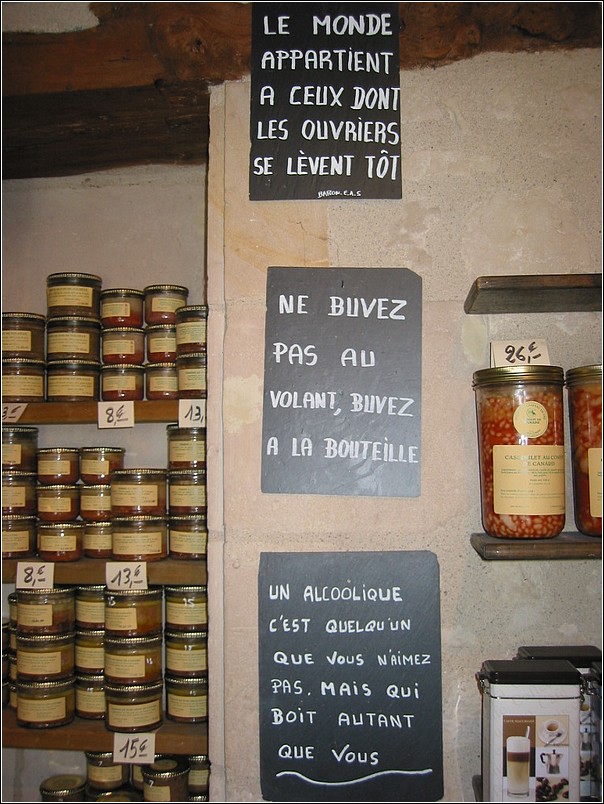 LE MONDE
APPARTIENT
A CEUX DONT
LES OUVRIERS
SE LÈVENT TÔT
NE BUVEZ
PAS AU
VOLANT, BUVEZ
A LA BOUTEILLE
UN ALCOOLIQUE
C'EST QUELQU'UN
QUE VOUS N'AIMEZ
PAS, MAIS QUI
BOIT AUTANT
QUE VOUS
8,€
13,
8,€
13,€
15€
26,€
CASSOULET AU CONFIT
DE CANARD